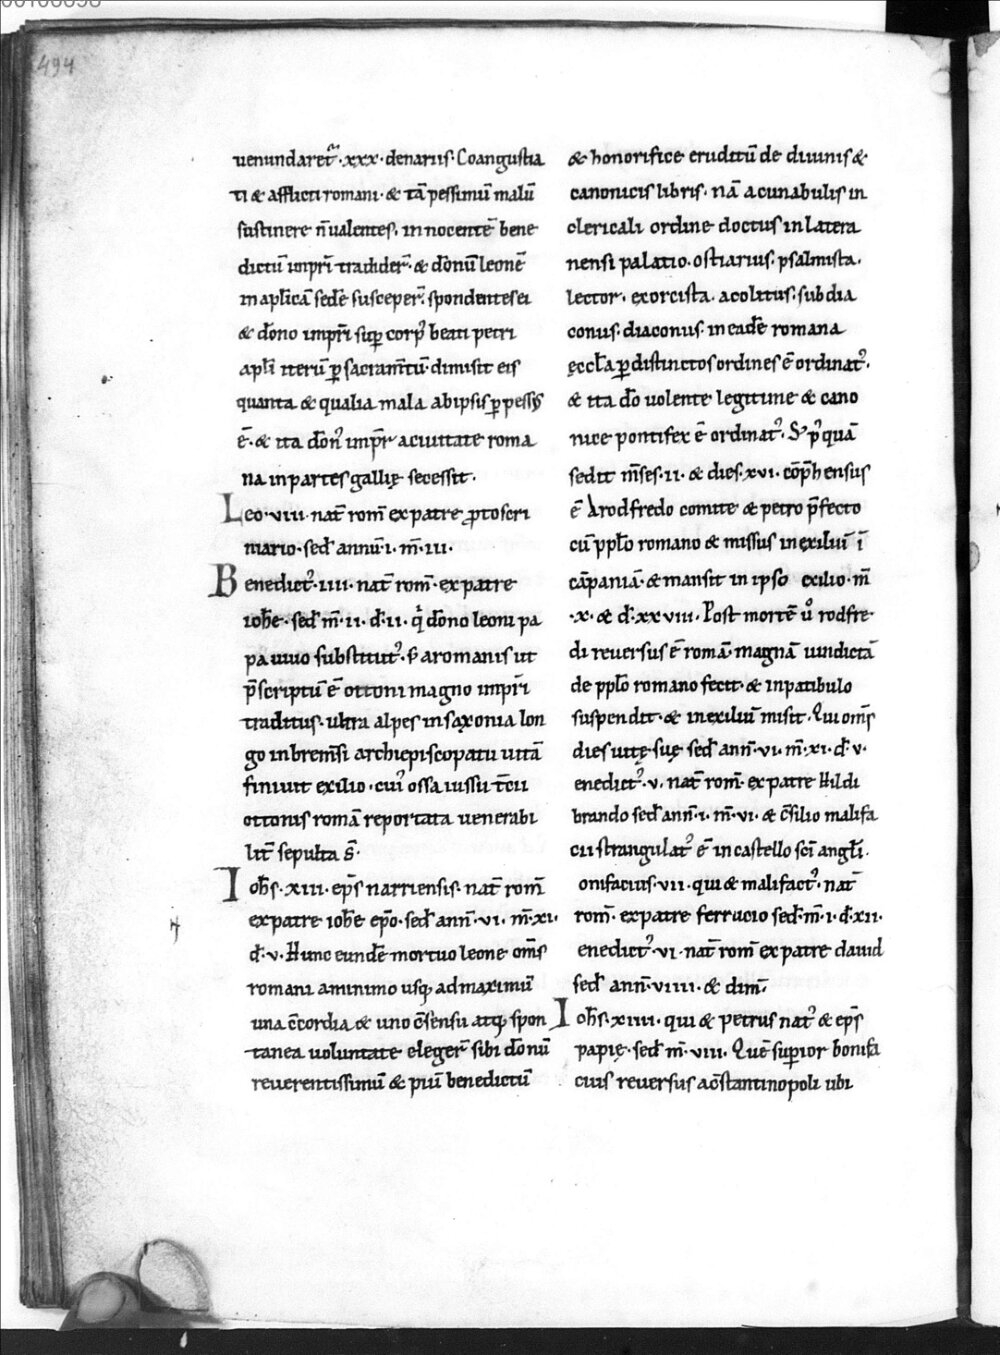 494
uenundaret᷒·xxx·denariis· Coangustia
ti & afflicti romani· & tā pessimū malū
sustinere n̄ ualentes, innocentē bene
dictū imp̄ri tradider̄· & dōnū leonē
in ap̄licā sedē susceper̄· spondentes ei
& dōno imp̄ri suꝑ corp᷒ beati petri
apl̄i iterū ꝑ sacram̄tū· dimisit eis
quanta & qualia mala ab ipsis ꝑpess᷒
ē· & ita dōn᷒ imp̄r a ciuitate roma
na in partes gallię secessit·
Leo·viii·nat̄ rom̄ ex patre ꝓtoscri
niario· sed̄ annū·i·m̄·iii·
Benedict᷒·iiii·nat̄ rom̄·ex patre
ioh̄e·sed̄ m̄·ii·d̄·ii· q̇ dōno leoni pa
pa uiuo substitut᷒· s̄ a romanis ut
p̄scriptū ē ottoni magno imp̄ri
traditus· ultra alpes in saxonia lon
go in brem̄si archiepiscopatu uitā
finiuit exilio· cui᷒ ossa iussu t̄cii
ottonis romā reportata uenerabi
lit̄ sepulta s̄·
Ioh̄s·xiii·ep̄s narniensis·nat̄ rom̄
ex patre ioh̄e ep̄o·sed̄ ann̄·vi·m̄·xi·
d̄·v· Hunc eundē mortuo leone om̄s
romani a minimo usq; ad maximū
una c̄cordia & uno c̄sensu atq; spon
tanea uoluntate eleger̄ sibi dōnū
reuerentissimū & piū benedictū
& honorifice eruditū de diuinis &
canonicis libris· nā a cunabulis in
clericali ordine doctus in latera
nensi palatio· ostiarius· psalmista·
lector· exorcista· acolitus· subdia
conus· diaconus· in eadē romana
ęccl̄a ꝑ distinctos ordines ē ordinat᷒·
& ita dō uolente legitime & cano
nice pontifex ē ordinat᷒· S; p᷒quā
sedit m̄ses·ii·& dies·xvi·cōp̄hensus
ē A rodfredo comite & petro p̄fecto
cū pplō romano & missus in exiliū ī
cāpaniā· & mansit in ipso exilio·m̄
·x·& d̄·xxviii· Post mortē ů rodfre
di reuersus ē romā· magnā uindictā
de pplō romano fecit· & in patibulo
suspendit· & in exiliū misit· Qui om̄s
dies uitę suę sed̄ ann̄·vi·m̄·xi·d̄·v·
enedict᷒·v·nat̄ rom̄·ex patre Hildi
brando sed̄ ann̄·i·m̄·vi·& c̄silio malifa
cii strangulat᷒ ē in castello sc̄i angl̄i·
onifacius·vii·qui & malifact᷒·nat̄
rom̄·ex patre ferrucio sed̄·m̄·i·d̄·xii·
enedict᷒·vi·nat̄ rom̄ ex patre dauid
sed̄ ann̄·viiii·& dim̄·
Ioh̄s·xiiii·qui & petrus nat᷒ & ep̄s
papię·sed̄ m̄·viii· Quē suꝑior bonifa
cius reuersus a c̄stantinopoli ubi